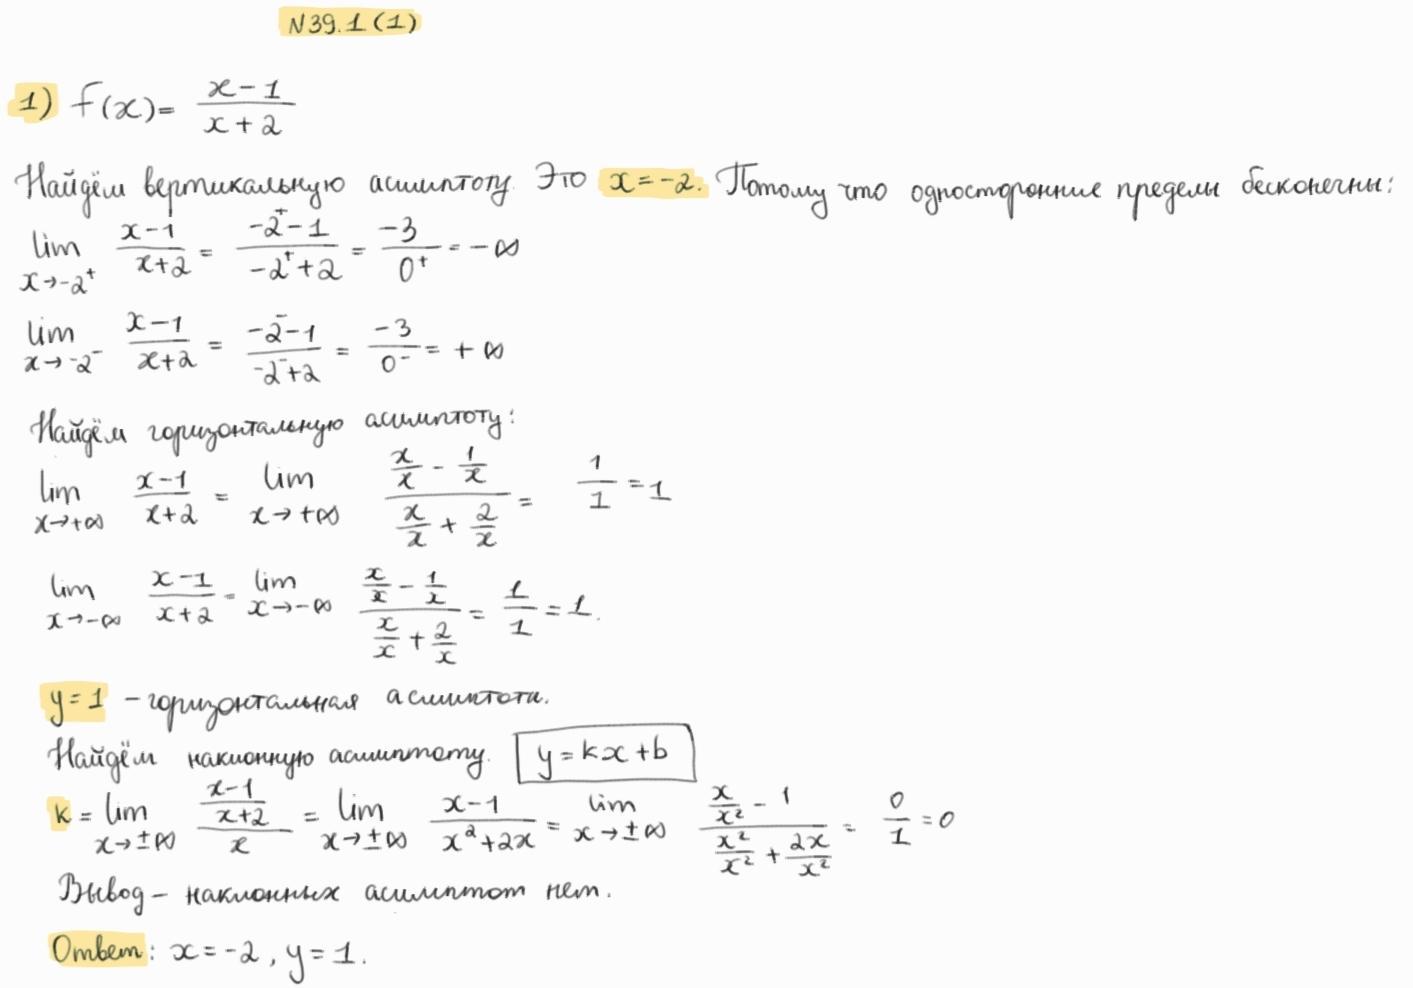 N39.1(1)
1) f(x)= (x-1)/(x+2)
Найдём вертикальную асимптоту. Это x=-2. Потому что односторонние пределы бесконечны:
lim x→-2⁺ (x-1)/(x+2) = (-2⁺-1)/(-2⁺+2) = -3/0⁺ = -∞
lim x→-2⁻ (x-1)/(x+2) = (-2⁻-1)/(-2⁻+2) = -3/0⁻ = +∞
Найдём горизонтальную асимптоту:
lim x→+∞ (x-1)/(x+2) = lim x→+∞ (x/x - 1/x)/(x/x + 2/x) = 1/1 = 1
lim x→-∞ (x-1)/(x+2) = lim x→-∞ (x/x - 1/x)/(x/x + 2/x) = 1/1 = 1.
y=1 - горизонтальная асимптота.
Найдём наклонную асимптоту. y=kx+b
k = lim x→±∞ ((x-1)/(x+2))/x = lim x→±∞ (x-1)/(x²+2x) = lim x→±∞ (x/x² - 1)/(x²/x² + 2x/x²) = 0/1 = 0
Вывод - наклонных асимптот нет.
Ответ: x=-2, y=1.